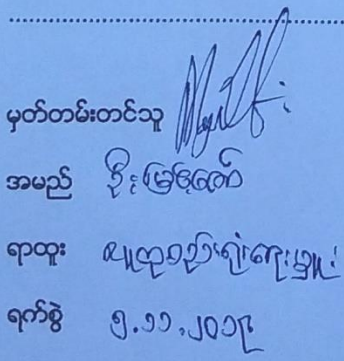 မှတ်တမ်းတင်သူ
အမည် ဦးမြဇော်
ရာထူး လူထုစည်းရုံးရေးမှူး
ရက်စွဲ ၅.၁၁.၂၀၁၉